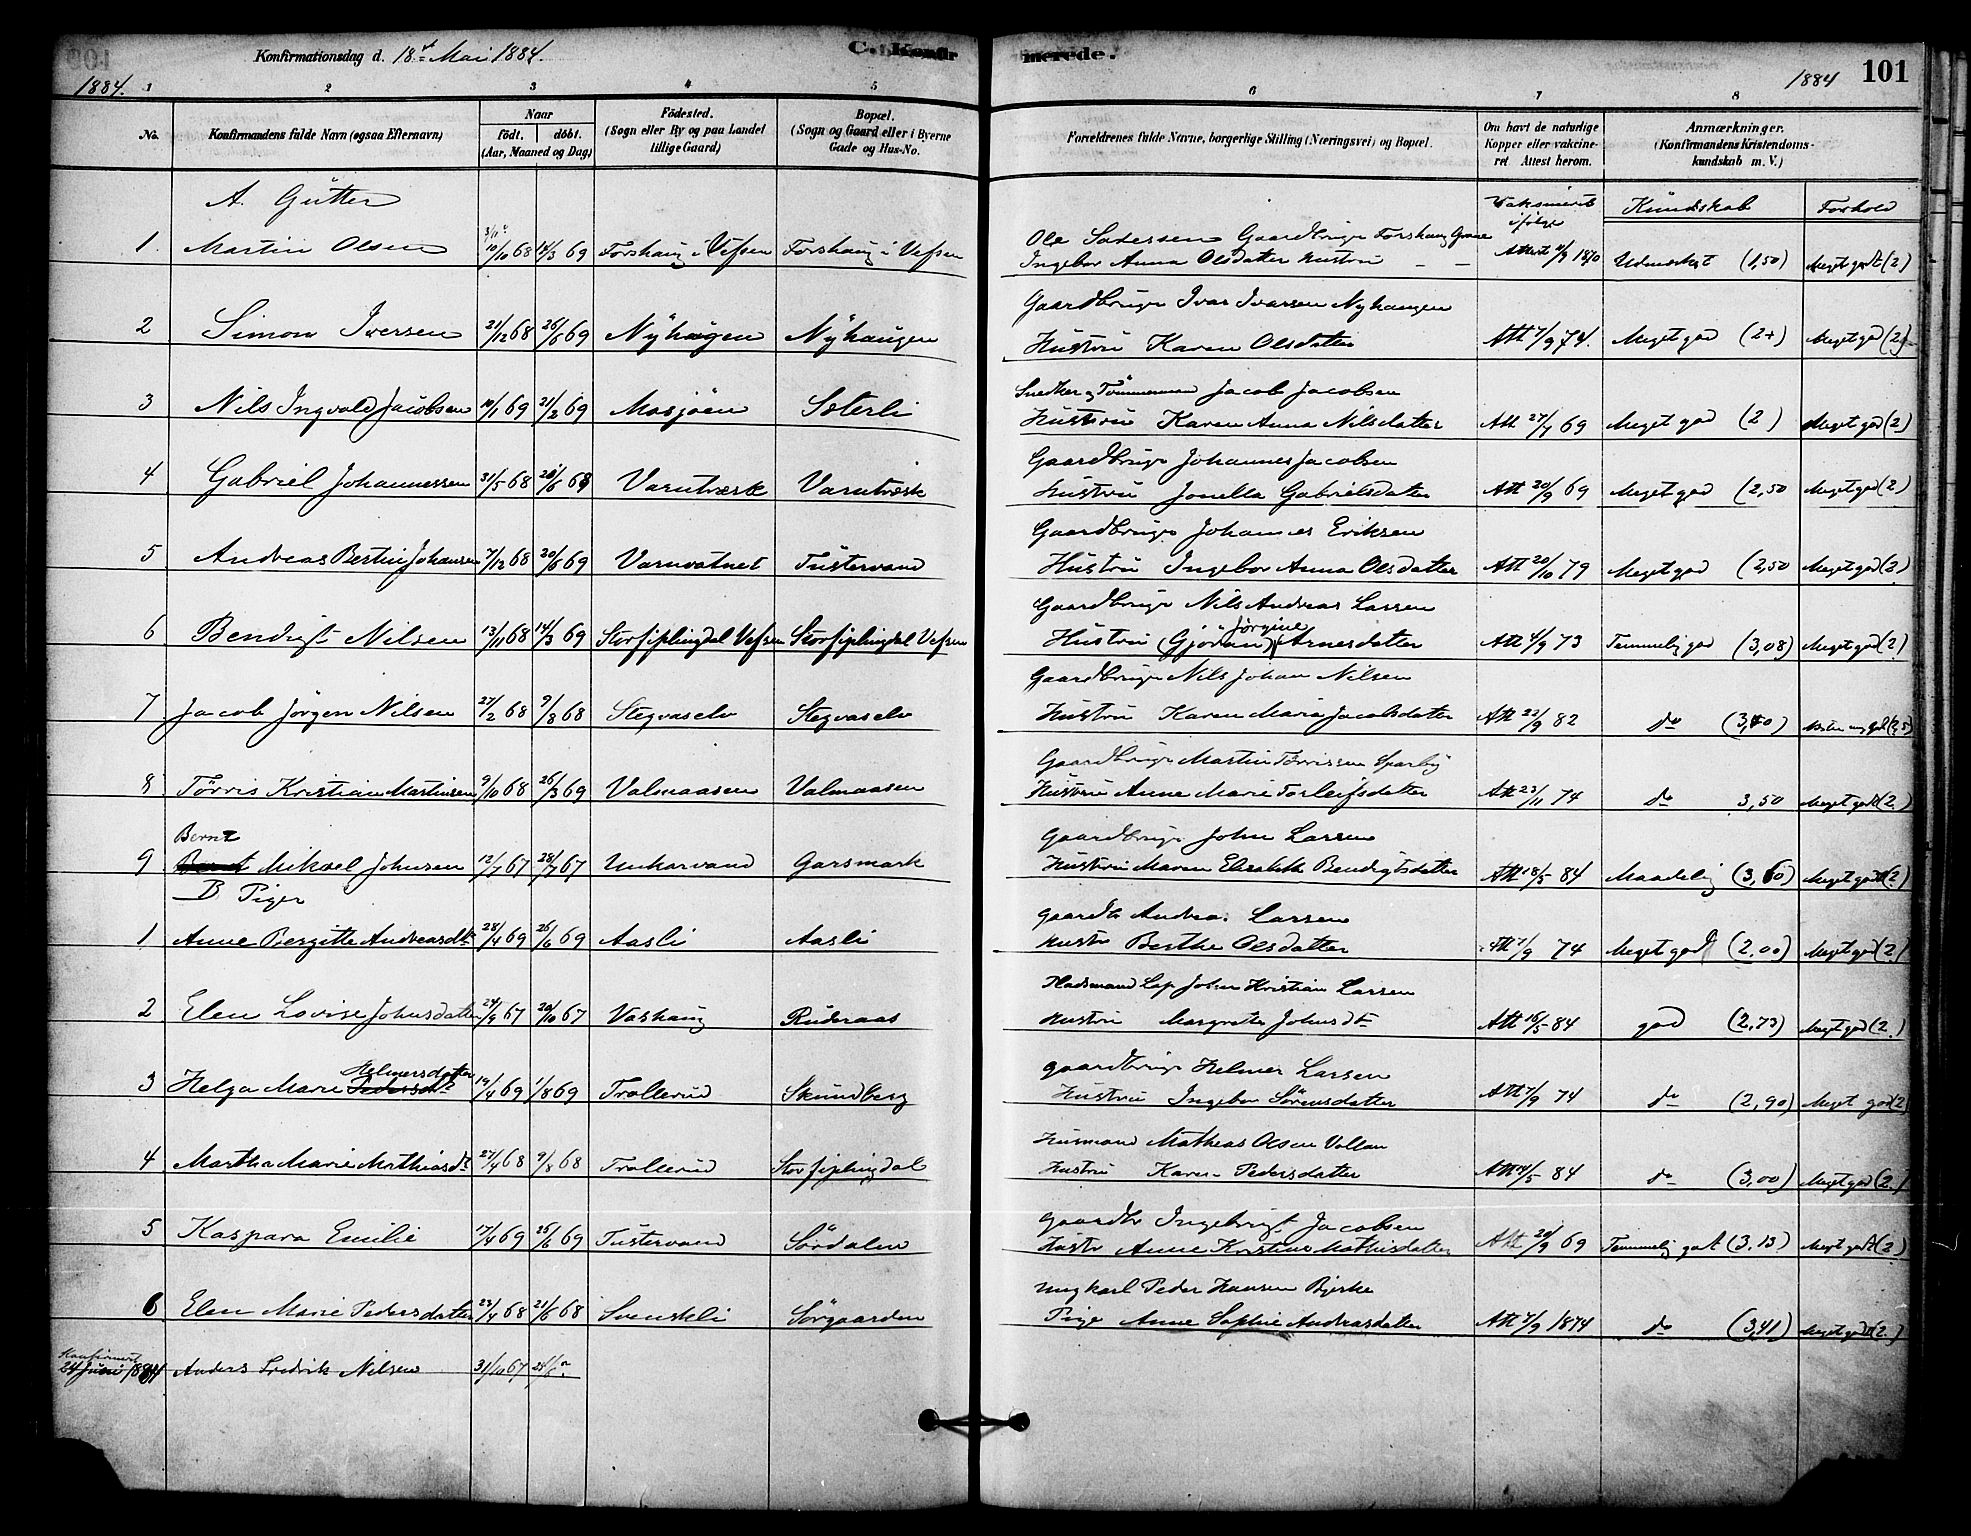 Konfirmationsdag d. 18de Mai 1884.
C. Konfirmerede.
1884 101
1884. 1 2 3 4 5 6 7 8
No. Konfirmandens fulde Navn (ogsaa Efternavn) Naar født. døbt. (Aar, Maaned og Dag) Fødested. (Sogn eller By og paa Landet tillige Gaard) Bopæl. (Sogn og Gaard eller i Byerne Gade og Hus-No. Forældrenes fulde Navne, borgerlige Stilling (Næringsvei) og Bopæl. Om havt de naturlige Kopper eller vakcineret Attest herom. Anmærkninger. (Konfirmandens Kristendomskundskab m. V.)
A. Gutter Vaksineret ifølge Kundskab Forhold
Ole Gaardbruger Forshaug Grane
1. Martin Olsen 10/10 68 14/3 69 Forshaug i Vefsen Forshaug i Vefsen Ingebor Anna Olsdatter Hustru — — Attest 1870 Udmerket (1,50) Meget godt (2)
Gaardbruger Ivar Ivarsen Nyhaugen
2 Simon Iversen 21/12 68 26/6 69 Nyhaugen Nyhaugen Hustru Karen Olsdatter Att 7/9 74. Meget god (2+) Meget god (2)
Snedker og Tømmermand Jacob Jacobsen
3 Nils Ingvald Jacobsen 10/1 69 21/2 69 Mosjøen Sæterli Hustru Karen Anna Nilsdatter Att 27/7 69 Meget god (2) Meget god (2)
Gaardbruger Johannes Jacobsen
4 Gabriel Johannessen 31/5 68 28/6 68 Varntræsk Varntræsk Hustru Jonella Gabrielsdatter Att 20/9 69 Meget god (2,50 Meget god (2)
Gaardbruger Johannes Eriksen
5 Andreas Bertin Johansen 7/12 68 20/6 69 Varnvatnet Tustervand Hustru Ingebor Anna Olsdatter Att 20/10 79 Meget god (2,50 Meget god (2)
Gaardbruger Nils Andreas Larsen
6 Bendigt Nilsen 13/11 68 14/3 69 Storfiplingdal Vefsen Storfiplingdal Vefsen Hustru (Gjöran) Jörgine Arnesdatter Att 4/9 73 Temmelig god (3,08) Meget god (2)
Gaardbruger Nils Johan Nilsen
7 Jacob Jörgen Nilsen 27/2 68 9/8 68 Stegvaselv Stegvaselv Hustru Karen Maria Jacobsdatter Att 22/9 82 do (3,40)
Gaardbruger Martin Tørrissen Sparby
8 Tørris Kristian Martinsen 9/10 68 26/3 69 Valmaasen Valmaasen Hustru Anne Marie Torleifsdatter Att 23/11 74 do 3,50 Meget godt (2)
Bernt Gaardbruger John Larsen
9 Mikael Johnsen 12/7 67 28/7 67 Unkarvand Garsmark Hustru Maren Elisabeth Bendigtsdatter Att 18/5 84 Maadelig (3,60) Meget godt (2)
B Piger
Gaardb Andreas Larsen
1 Anne Bergitte Andreasdtr 28/4 69 26/6 69 Aasli Aasli Hustr Berthe Olsdatter Att 7/9 74 Meget god (2,00) Meget god (2)
Pladsmand Lap John Kristian Larsen
2 Elen Lovise Johnsdatter 24/9 67 20/10 67 Vashaug Ruderaas Hustru Margrete Johnsdtr Att 16/5 84 god (2,73) Meget god (2)
Helmersdatter Gaardbruger Helmer Larsen
3 Helga Marie Pedersdtr 19/4 69 1/8 69 Trollerud Skundberg Hustru Ingebor Sörensdatter Att 7/9 74 do (2,90) Meget god (2)
Husmand Mathias Olsen Vollan
4 Martha Marie Mathiasdt 27/4 68 9/8 68 Trollerud Storfiplingdal Hustru Karen Pedersdatter Att 84 do (3,00) Meget god (2)
Gaardbr Ingebrigt Jacobsen
5 Kaspara Emilie 17/4 69 26/6 69 Tustervand Sørdalen Hustr Anne Kristine Mathisdatter Att 20/9 69 Temmelig godt (3,13) Meget godt (2)
Ungkarl Peder Hansen Bjerke
6 Elen Marie Pedersdatter 23/4 68 21/6 68 Svenskli Sørgaarden Pige Anne Sophie Andreasdatter Att 7/9 1874 do (3,41) Meget godt (2)
Konfirmeret
24 Juni 1884 Anders Fredrik Nilsen 31/10 67